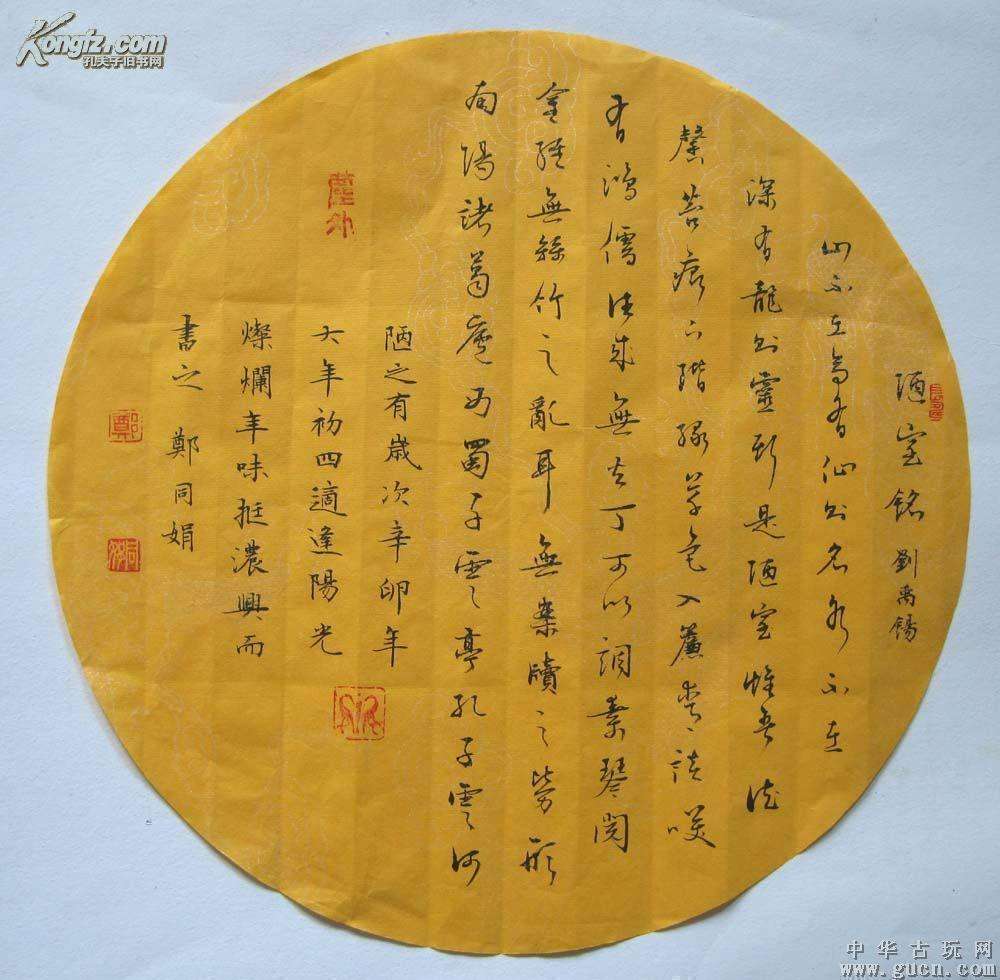 Kongfz.com
孔夫子旧书网
陋室銘 劉禹錫
山不在高有仙則名水不在
深有龍則靈斯是陋室惟吾德
馨苔痕上階綠草色入簾青談咲
有鴻儒往來無白丁可以調素琴閱
金經無絲竹之亂耳無案牘之勞形
南陽諸葛廬西蜀子雲亭孔子雲何
陋之有歲次辛卯年
大年初四適逢陽光
燦爛年味挺濃興而
書之 鄭同娟
塵外
中华古玩网
www.gucn.com